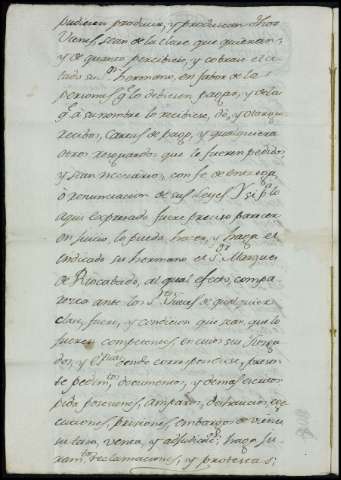 pudieren producir, y produzcan dhos
Vienes, sean de la clase que quieran;
y de quanto perciviere, y cobrare el ci-
tado su S.r hermano, en fabor de las
personas q.e lo debieren pagar, y de las
q.e a su nombre lo recibiere, dé, y otorgue
recibos, cartas de pago, y qualquiera
otros resguardos que le fueren pedidos
y sean necesarios, con fe de entrega,
ò renunciacion de sus Leyes Y si p.r lo
aqui expresado fuere preciso parecer
en juicio, lo pueda hacer, y haga el
indicado su hermano el S.r Marques
de Riocabado, al qual efecto, compa-
rezca ante los S.res Jueces de qualquier
clase, fuero, y condicion que sean, que lo
fueren competentes, en cuios sus Juzga-
dos, y donde corresponda, presen-
te pedim.tos documentos, y demas escritos
pida posesiones, amparos, exe-
cuciones, prisiones, embargos de vienes
su tasa, venta, y haga ju-
ram.tos reclamaciones, y protestas;